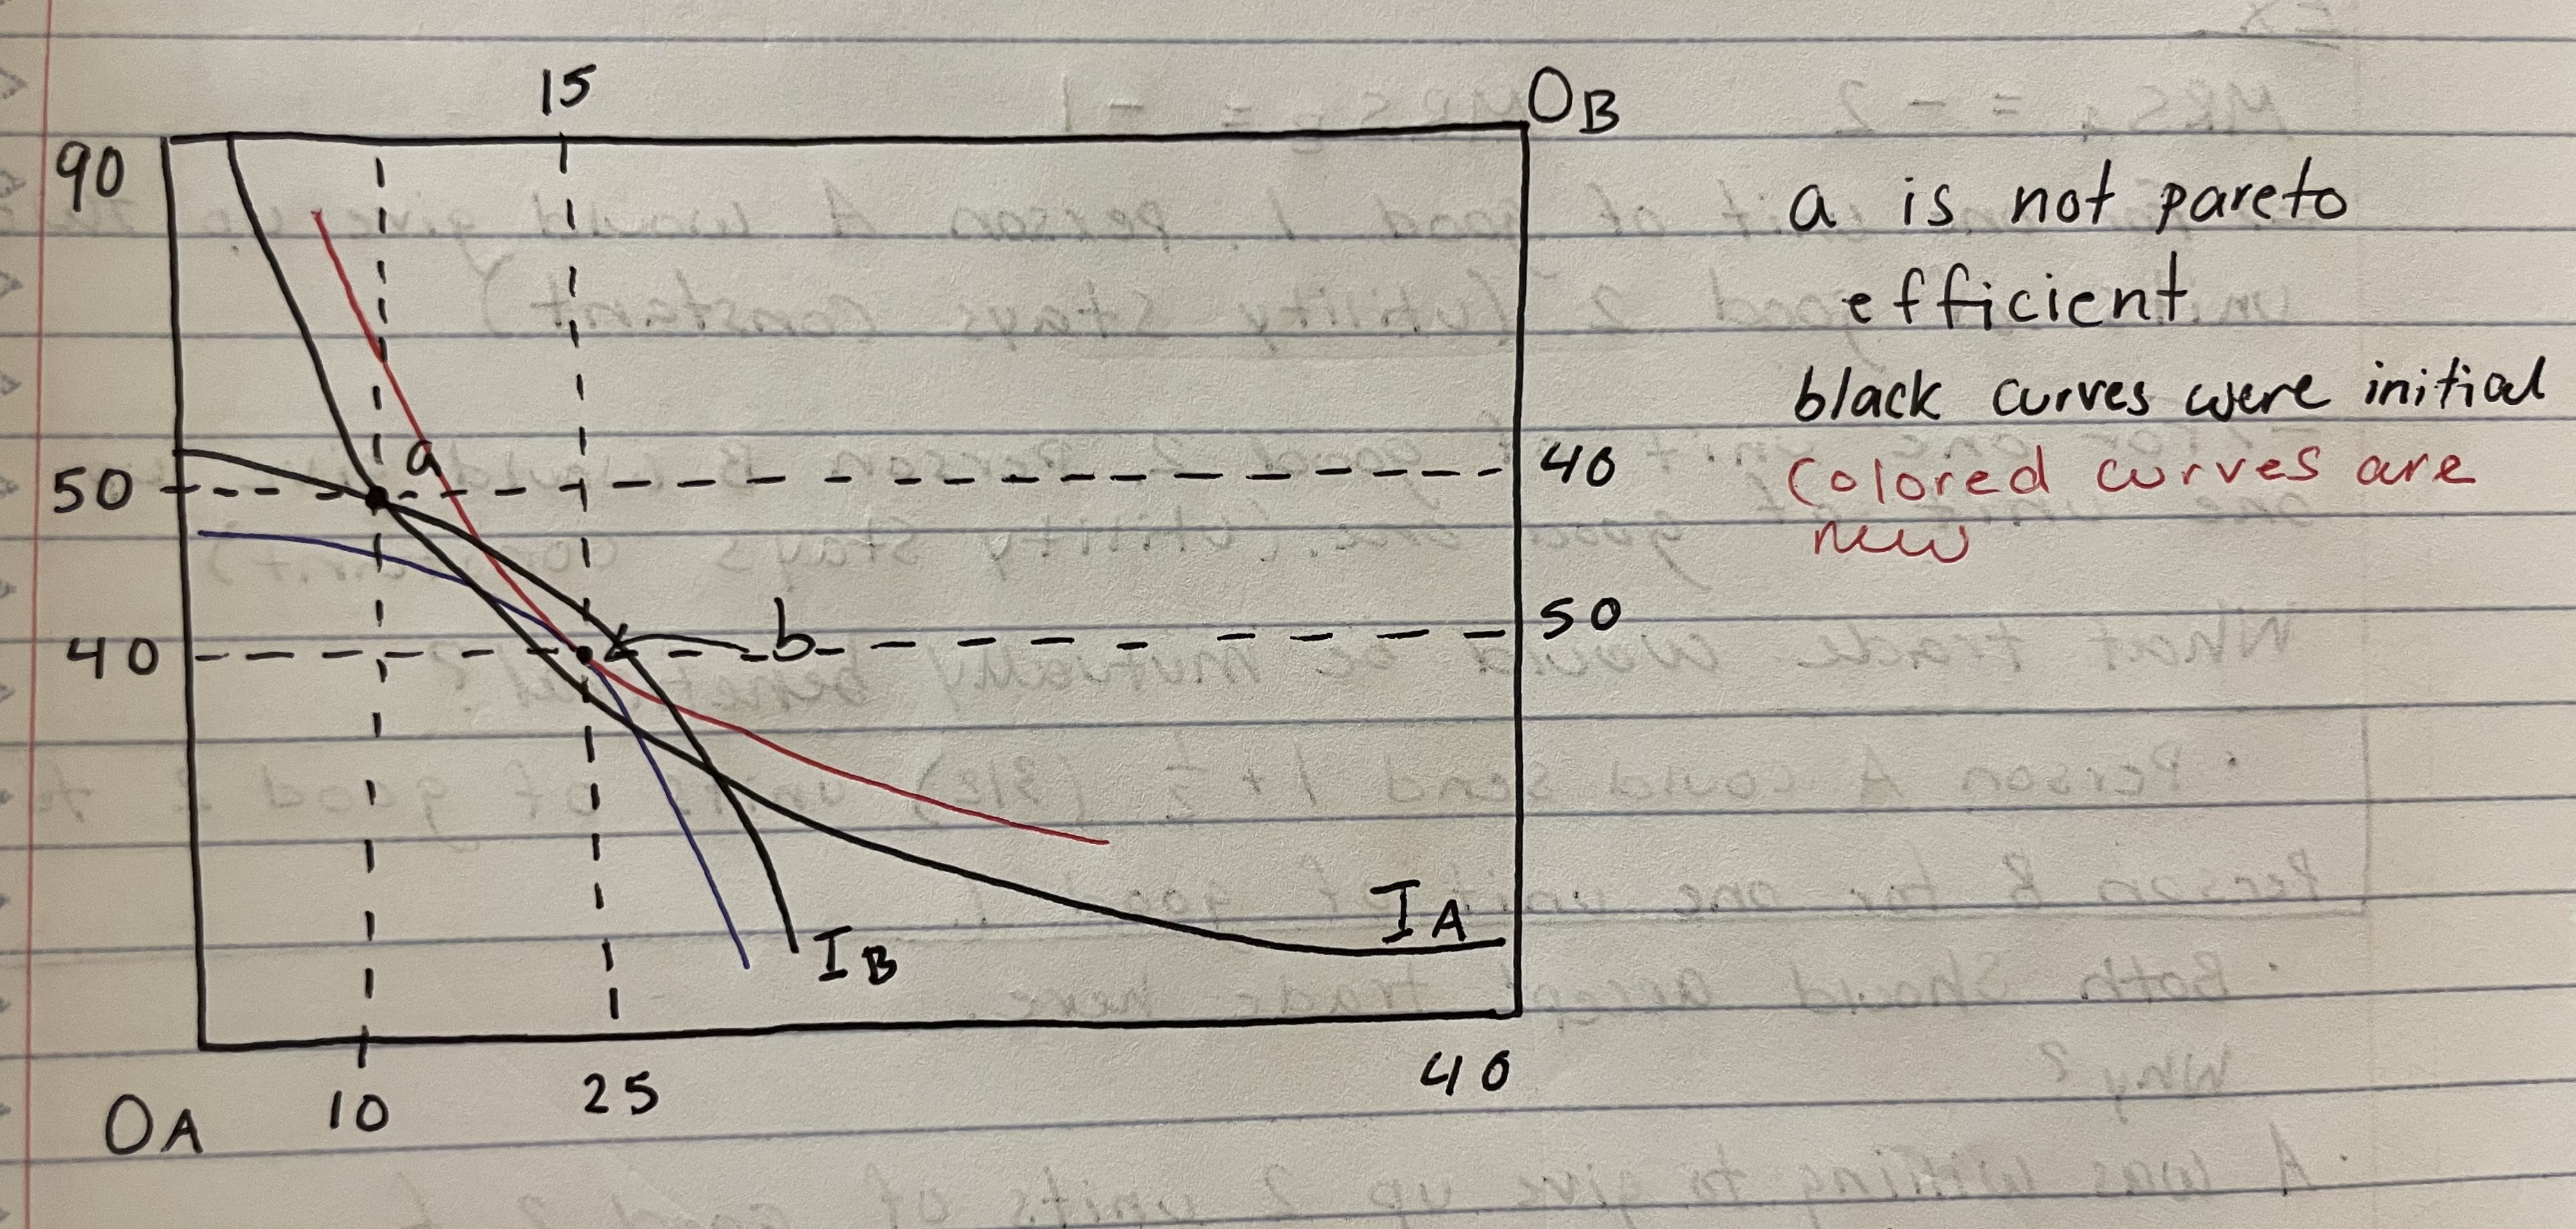 15
OB
90
a is not pareto
efficient
black curves were initial
a
50
40
colored curves are
new
b
50
40
IA
IB
40
25
10
OA